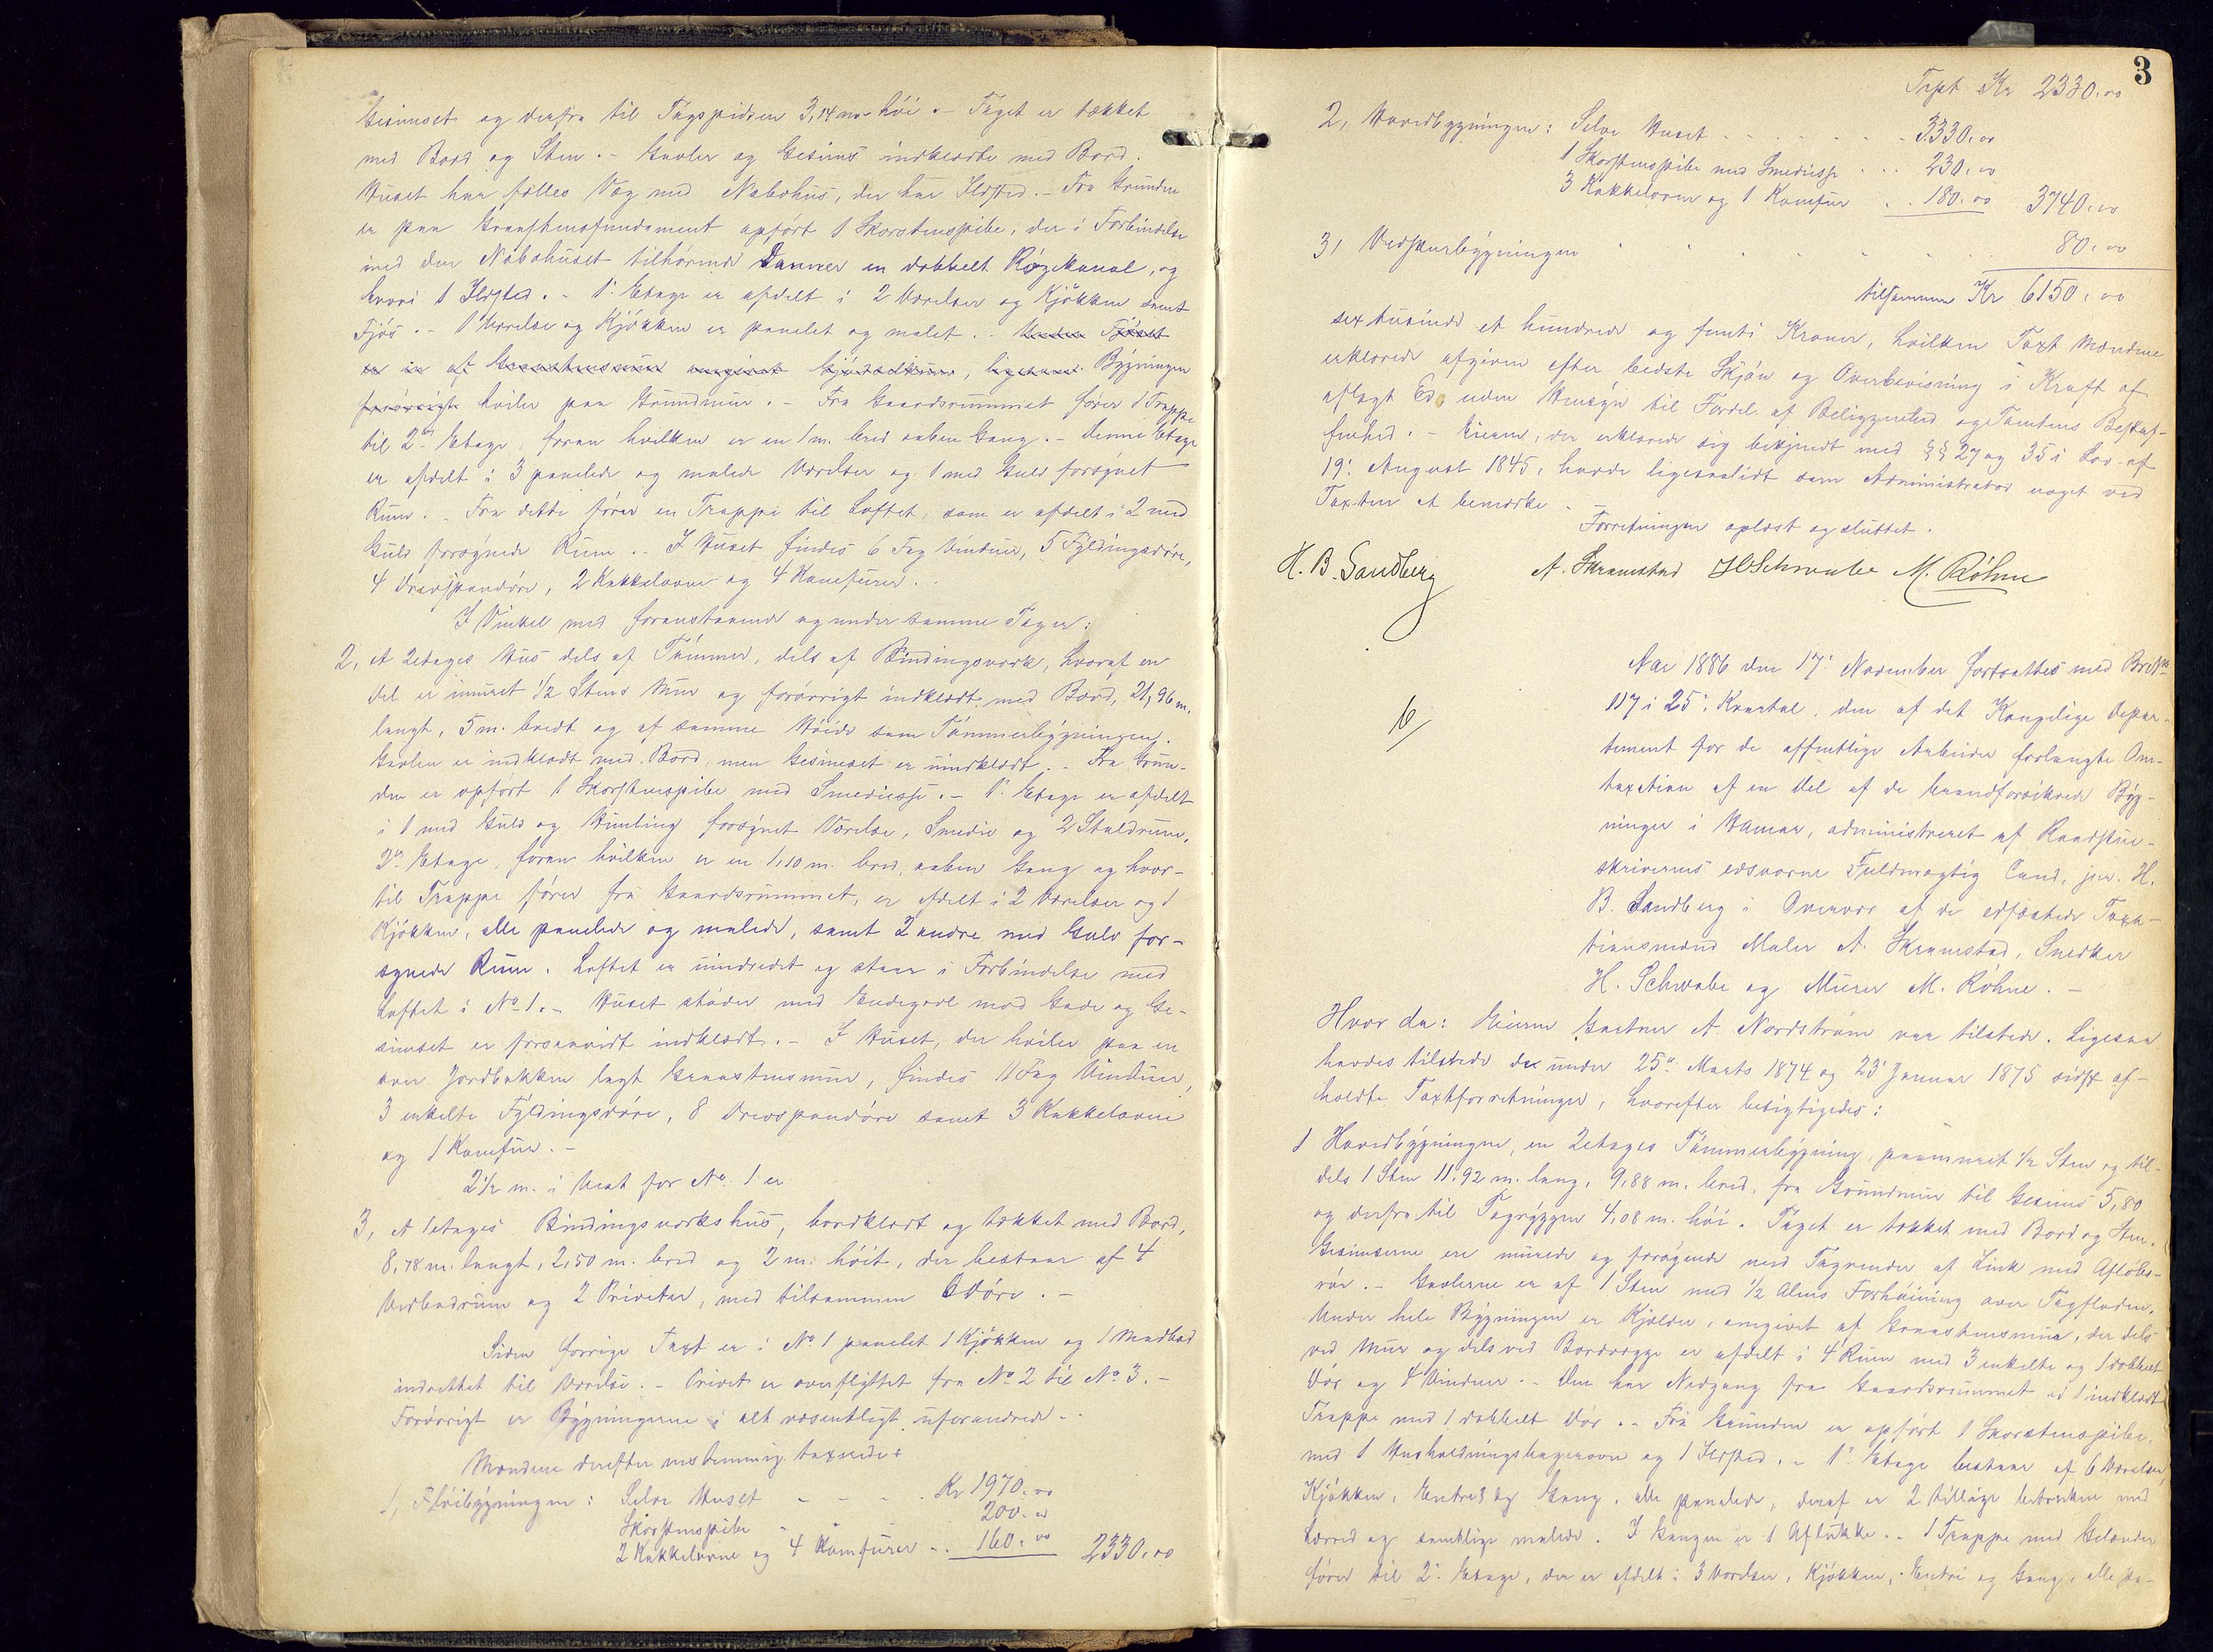 Gesimset og derfra til Tagspidsen 3,14 m høi. - Taget er tækket
med Bord og Sten. - Gavler og Gesims indklædte med Bord.
Huset har fælles Væg med Nabohus, der har Ildsted. - Fra Grunden
er paa Graastensfundament opført 1 Skorstenspibe, der i Forbindelse
med den Nabohuset tilhørende danner en dobbelt Røgkanal, og
hvori 1 Ildsted. - 1' Etage er afdelt i 2 Værelser og Kjøkken samt
Fjøs. - 1 Værelse og Kjøkken er panelet og malet. - Under Fjøset
er en af Graastensmur omgivet Gjødselkum, ligesom Bygningen
forøvrigt hviler paa Grundmur. - Fra Gaardsrummet fører 1 Trappe
til 2den Etage, foran hvilken er en 1 m. bred aaben Gang. - Denne Etage
er afdelt i 3 panelede og malede Værelser og 1 med Gulv forsynet
Rum. - Fra dette fører en Trappe til Loftet, som er afdelt i 2 med
Gulv forsynede Rum. - I Huset findes 6 Fag Vinduer, 5 Fyldingsdøre,
4 Drevspandøre, 2 Kakkelovne og 4 Komfurer. -
I Vinkel med foranstaaende og under samme Tag er:
2, et 2etages Hus dels af Tømmer, dels af Bindingsværk, hvoraf en
del er muret 1/2 Stens Mur og forøvrigt indklædt med Bord, 21,96 m.
langt, 5 m. bredt og af samme Høide som Tømmerbygningen.
Gavlen er indklædt med Bord, men Gesimset er uindklædt. - Fra Grun-
den er opført 1 Skorstenspibe med Smedieesse. - 1' Etage er afdelt
i 1 med Gulv og Himling forsynet Værelse, Smedie og 2 Staldrum.
2den Etage, foran hvilken er en 1,10 m. bred, aaben Gang og hvor-
til Trappe fører fra Gaardsrummet, er afdelt i 2 Værelser og 1
Kjøkken, alle panelede og malede, samt 2 andre med Gulv for-
synede Rum. Loftet er uindredet og staar i Forbindelse med
Loftet i No 1. - Huset støder med Endegavl mod Gade og Ge-
simset er forsaavidt indklædt. - I Huset, der hviler paa en
over Jordbakken lagt Graastensmur, findes 11 Fag Vinduer,
3 enkelte Fyldingsdøre, 8 Drevspandøre samt 3 Kakkelovne
og 1 Komfur. -
2 1/2 m. i Vest for No. 1 er
3, et 1etages Bindingsværkshus, bordklædt og tækket med Bord,
8,78 m. langt, 2,50 m. bred og 2 m. høit, der bestaar af 4
Vedbodrum og 2 Priveter, med tilsammen 6 døre. -
Siden forrige Taxt er i No 1 panelet 1 Kjøkken og 1 Madbod
indrettet til Værelse. - Privet er overflyttet fra No 2 til No 3. -
Forøvrigt er Bygningerne i alt væsentligt uforandrede. -
Mændene derefter enstemmig taxerede:
1, Fløibygningen: Selve Huset - - - Kr 1970.00
Skorstenspibe - - 200.00
2 Kakkelovne og 4 Komfurer - . 160.00 2330.00
3
Trspt Kr 2330.00
2, Hovedbygningen: Selve Huset - - - 3330.00
1 Skorstenspibe med Smedieesse . . . 230.00
3 Kakkelovne og 1 Komfur . . 180.00 3740.00
3, Vedskurbygningen - - 80.00
tilsammen Kr 6150.00
sextusinde et hundrede og femti Kroner, hvilken Taxt Mændene
erklærede afgiven efter bedste Skjøn og Overbevisning i Kraft af
aflagt Ed uden Hensyn til Fordel af Beliggenhed og Tomtens Beskaf-
fenhed. - Eieren, der erklærede sig bekjendt med §§ 27 og 35 i Lov af
19' August 1845, havde ligesaalidt som Administrator noget ved
Taxten at bemærke. -
Forretningen oplæst og sluttet.
H. B. Sandberg A. Skramstad H Schwabe M. Röhne
6/
Aar 1886 den 17' November fortsattes med Br No
117 i 25' Kvartal, den af det Kongelige Depar-
tement for de offentlige Arbeider forlangte Om-
taxation af en Del af de brandforsikrede Byg-
ninger i Hamar, administreret af Raadstue-
skriverens edsvorne Fuldmægtig Cand. jur. H.
B. Sandberg i Overvær af de edfæstede Taxa-
tionsmænd Maler A. Skramstad, Snedker
H. Schwabe og Murer M. Röhne. -
Hvor da: Eieren Gartner A. Nordstrøm var tilstede. Ligesaa
havdes tilstede de under 25' Marts 1874 og 23' Januar 1875 sidst af-
holdte Taxtforretninger, hvorefter besigtigedes:
1 Hovedbygningen, en 2etages Tømmerbygning, paamuret 1/2 Sten og til-
dels 1 Sten 11.92 m. lang, 9,88 m. bred, fra Grundmur til Gesims 5,80
og derfra til Tagryggen 4,08 m. høi. Taget er tækket med Bord og Sten.
Gesimserne ere murede og forsynede med Tagrender af Zink med Afløbs-
rør. - Gavlerne er af 1 Sten med 1/2 Alens Forhøining over Tagfladen.
Under hele Bygningen er Kjælder, omgivet af Graastensmur, der dels
ved Mur og dels ved Bordvægge er afdelt i 4 Rum med 3 enkelte og 1 dobbelt
Dør og 4 Vinduer. - Den har Nedgang fra Gaardsrummet ad 1 indklædt
Trappe med 1 dobbelt Dør. - Fra Grunden er opført 1 Skorstenspibe
med 1 Husholdningsbagerovn og 1 Ildsted. - 1' Etage bestaar af 6 Værelser,
Kjøkken, Entree og Gang, alle panelede, deraf er 2 tillige betrukne med
Lærred og samtlige malede. I Gangen er 1 Aflukke. - 1 Trappe med Gelænder
fører til 2' Etage, der er afdelt i 3 Værelser, Kjøkken, Entré og Gang, alle pa-